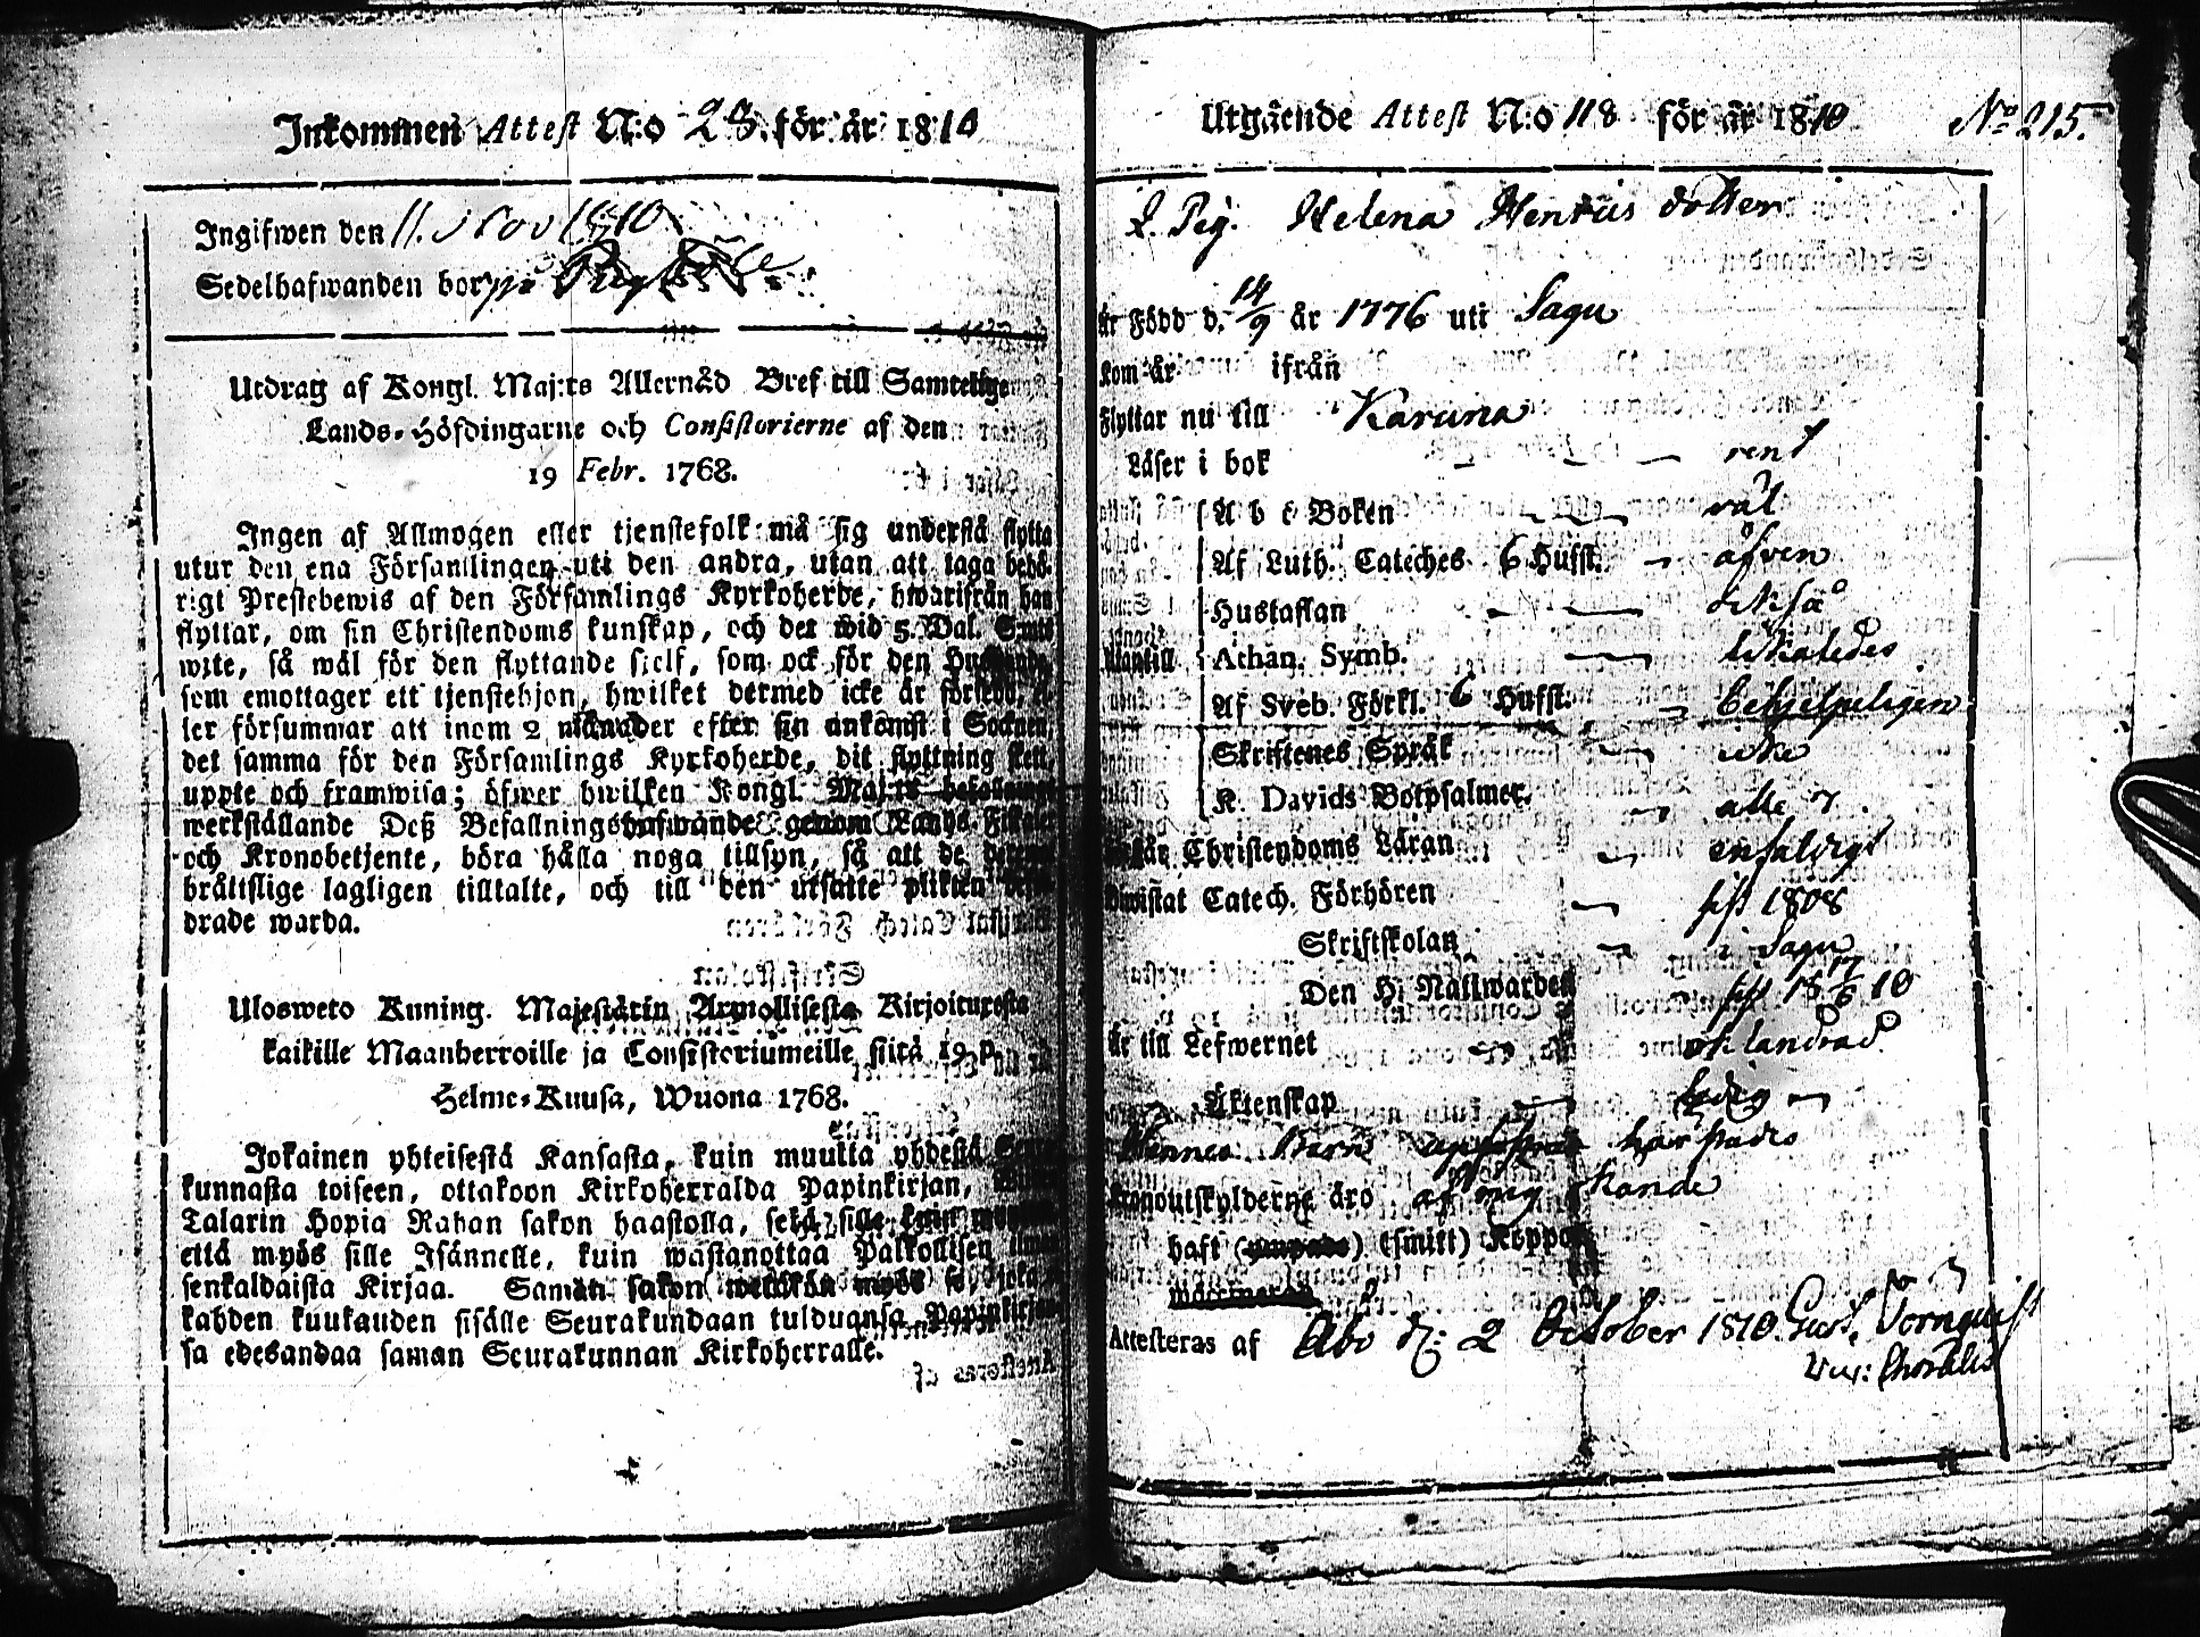 Inkommen Attest N:o 28. för år 1810
Ingifwen den 11. Nov 1810
Sedelhafwanden bor
Utdrag af Kongl. Maj:ts Allernåd Bref till Samtelige
Lands-Höfdingarne och Consistorierne af den
19 Febr. 1768.
Ingen af Allmogen eller tjenstefolk må sig understå flytta
utur den ena Församlingen uti den andra, utan att taga behö-
rigt Prestebewis af den Församlings Kyrkoherde, hwarifrån han
flyttar, om sin Christendoms kunskap, och det wid 5. Dal. S:mts
wite, så wäl för den flyttande sjelf, som ock för den
som emottager ett tjenstehjon, hwilket dermed icke är försedt, el-
ler försummar att inom 2 månader efter sin ankomst i Socknen,
det samma för den Församlings Kyrkoherde, dit flyttning skett,
uppte och framwisa; öfwer hwilken Kongl. Maj:ts befallnings
werkställande Deß Befallningshafwande genom Lands-Fiskaler
och Kronobetjente, böra hålla noga tillsyn, så att de
bråttslige lagligen tilltalte, och till den utsatte plikten
drade warda.
Ulosweto Kuning. Majestätin Armollisesta Kirjoituxesta
kaikille Maanherroille ja Consistoriumeille siitä 19. p.
Helme-Kuusa, Wuona 1768.
Jokainen yhteisestä Kansasta, kuin muutta yhdestä Seura-
kunnasta toiseen, ottakoon Kirkoherralda Papinkirjan,
Talarin Hopia Rahan sakon haastolla, sekä sille kuin muutta
että myös sille Isännelle, kuin wastanottaa Palkollisen ilman
senkaldaista Kirjaa. Saman sakon wetäkön myös se, joka
kahden kuukauden sisälle Seurakundaan tulduansa Papinkirjan-
sa edesandaa saman Seurakunnan Kirkoherralle.
Utgående Attest N:o 118 för år 1810 No 215.
P. Pig. Helena Henricsdotter
Är Född d. 14/9 år 1776 uti Sagu
Kom år ifrån
Flyttar nu till Karuna
Läser i bok rent
A b c Boken väl
Af Luth. Cateches 6 Hufst. äfven
Hustaflan också
Utantill Athan. Symb. likaledes
Af Sveb. Förkl. 6 Hufst. behjelpeligen
Skriftenes Språk icke
K. Davids Botpsalmer alla 7.
Christendoms Läran enfaldigt
Bewistat Catech. Förhören sist 1808
Skriftskolan i Sagu
Den H. Nattwarden sist 18 17/6 10
Är till Lefwernet oklandrad
Äktenskap ledig
Hennes Barn här städes
Kronoutskylderne äro af mig kände
haft (ympade) (smitt) Koppor
Attesteras af Åbo d: 2 October 1810. Gust. Törnquist